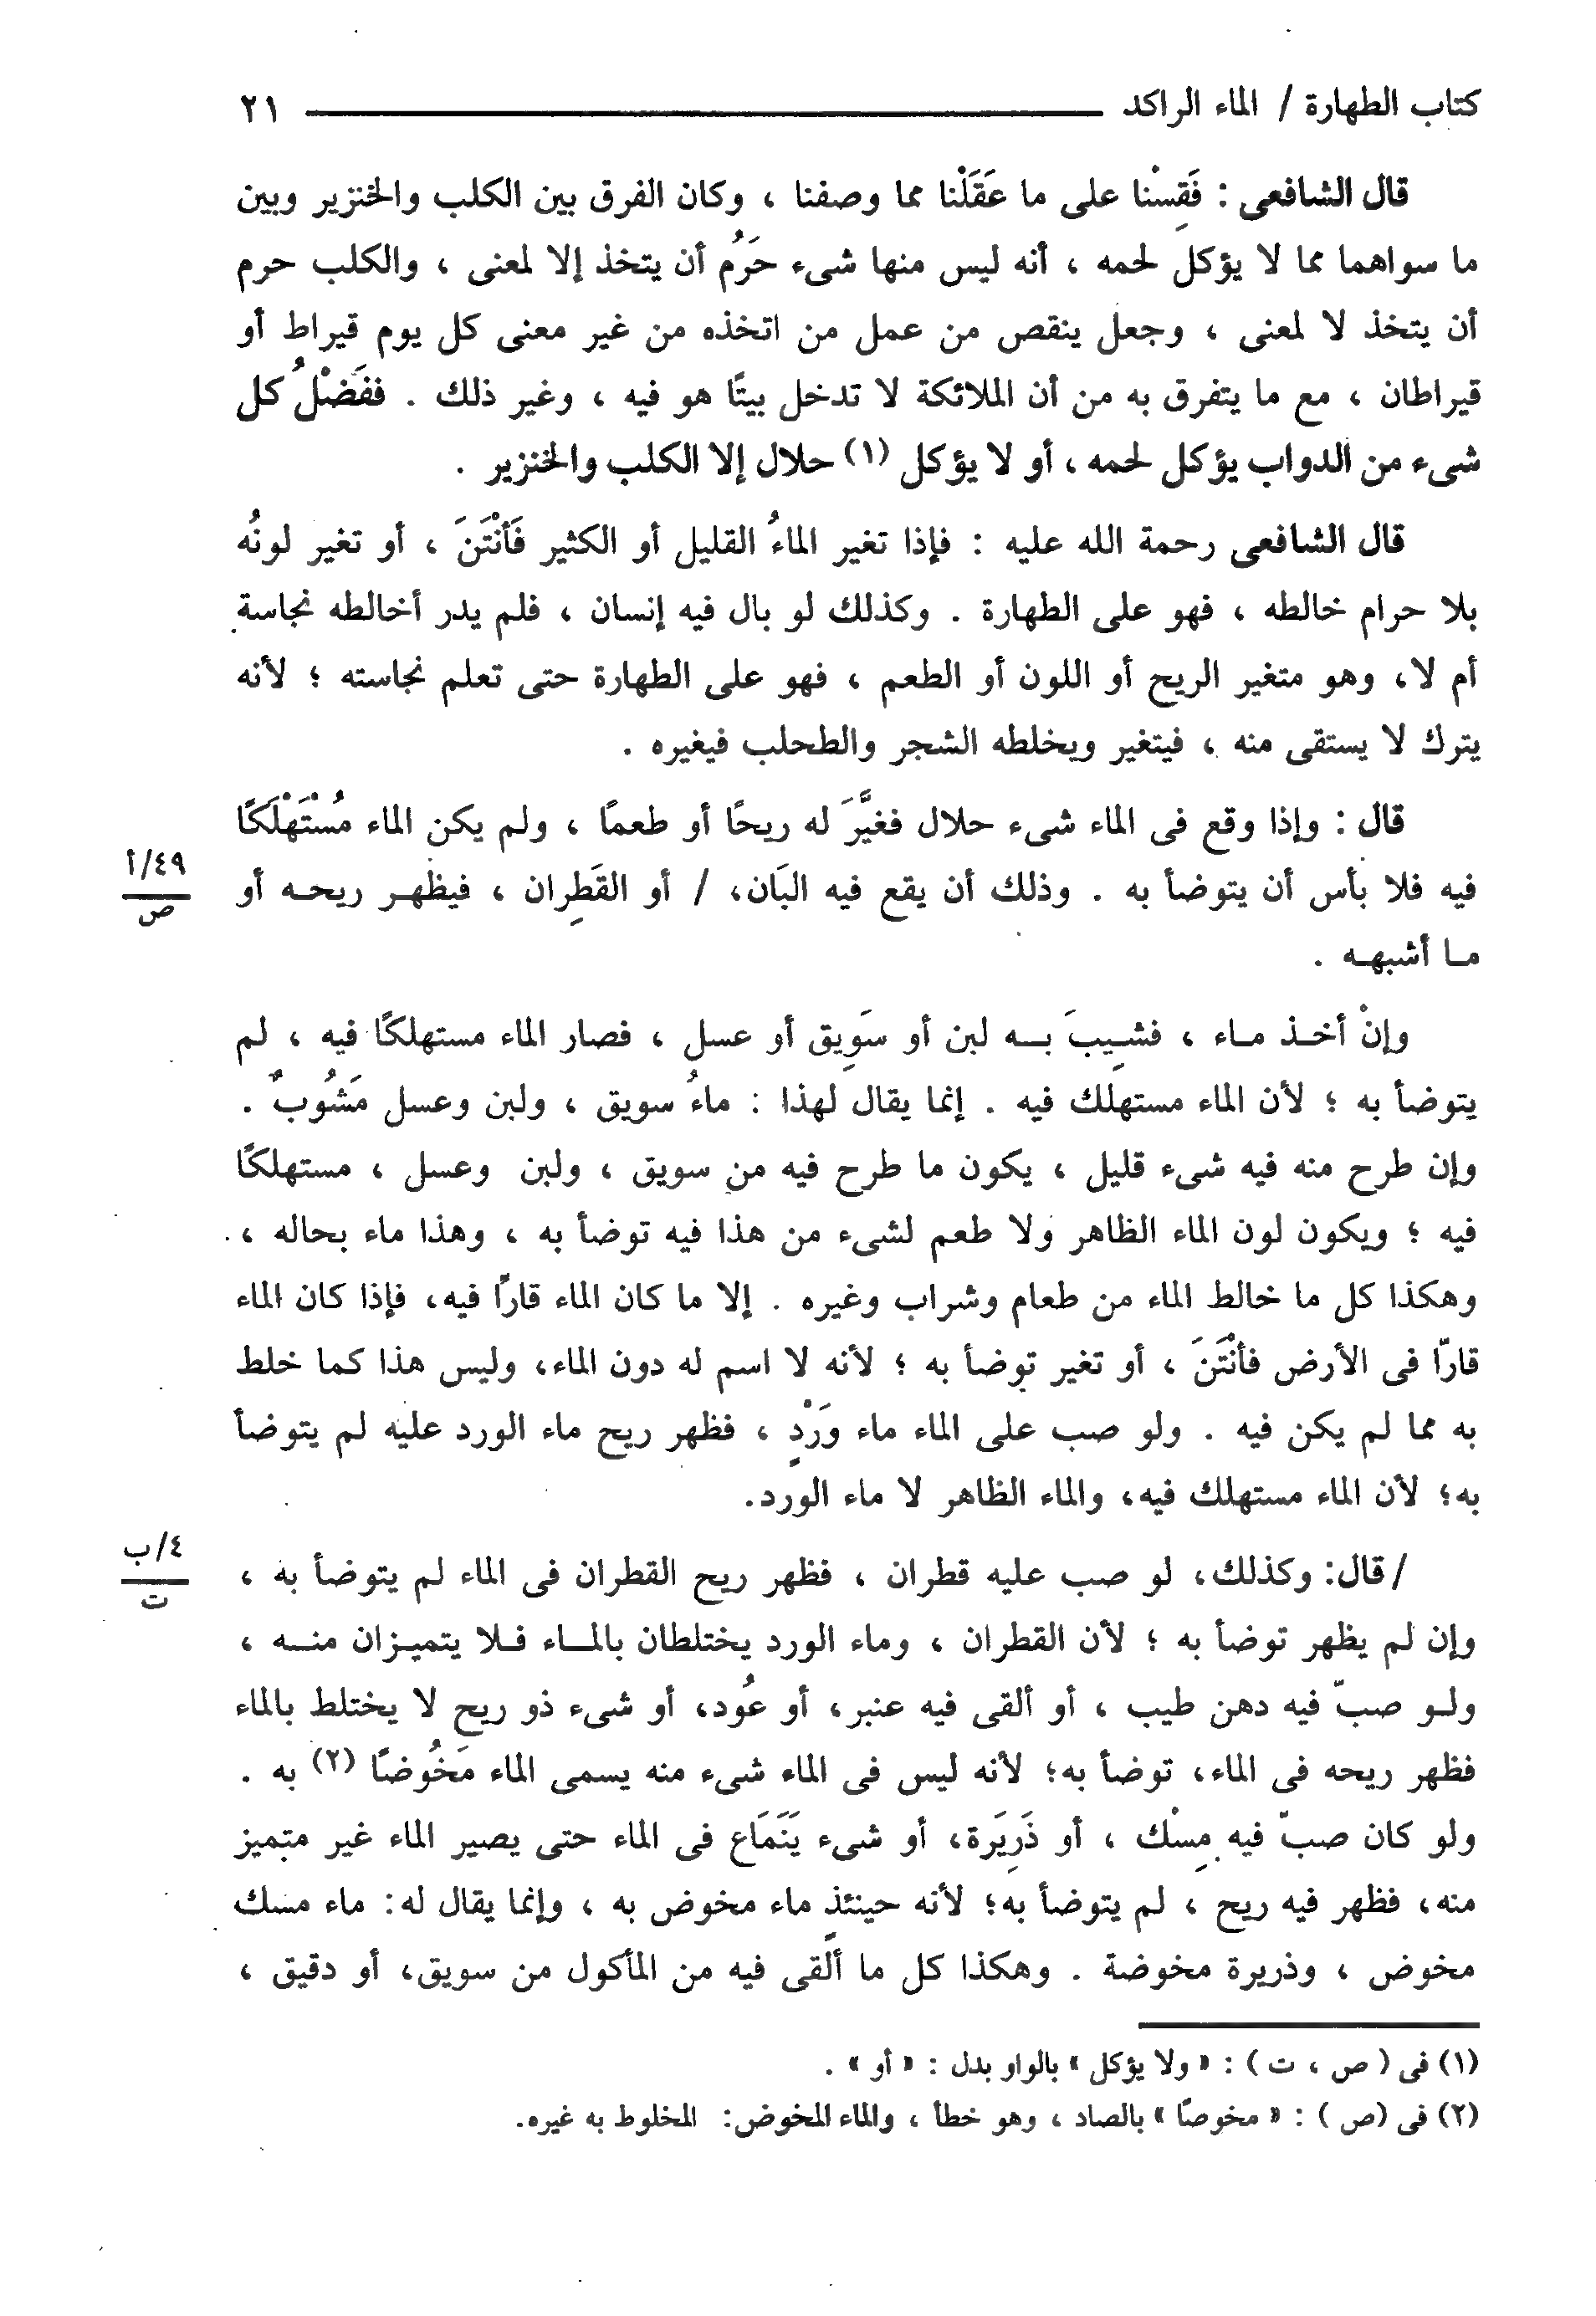 كتاب الطهارة / الماء الراكد ٢١
قال الشافعى : فَقِسْنا على ما عَقَلْنا مما وصفنا ، وكان الفرق بين الكلب والخنزير وبين
ما سواهما مما لا يؤكل لحمه ، أنه ليس منها شىء حَرُم أن يتخذ إلا لمعنى ، والكلب حرم
أن يتخذ لا لمعنى ، وجعل ينقص من عمل من اتخذه من غير معنى كل يوم قيراط أو
قيراطان ، مع ما يتفرق به من أن الملائكة لا تدخل بيتًا هو فيه ، وغير ذلك . ففَضْلُ كل
شىء من الدواب يؤكل لحمه ، أو لا يؤكل (١) حلال إلا الكلب والخنزير .
قال الشافعى رحمة الله عليه : فإذا تغير الماءُ القليل أو الكثير فَأنْتَنَ ، أو تغير لونُه
بلا حرام خالطه ، فهو على الطهارة . وكذلك لو بال فيه إنسان ، فلم يدر أخالطه نجاسة
أم لا، وهو متغير الريح أو اللون أو الطعم ، فهو على الطهارة حتى تعلم نجاسته ؛ لأنه
يترك لا يستقى منه ، فيتغير ويخلطه الشجر والطحلب فيغيره .
قال : وإذا وقع فى الماء شىء حلال فغيَّرَ له ريحًا أو طعمًا ، ولم يكن الماء مُسْتَهْلَكًا
٤٩/أ
فيه فلا بأس أن يتوضأ به . وذلك أن يقع فيه البَان، / أو القَطِران ، فيظهر ريحه أو
ص
ما أشبهه .
وإنْ أخذ ماء ، فشِيبَ به لبن أو سَوِيق أو عسل ، فصار الماء مستهلكًا فيه ، لم
يتوضأ به ؛ لأن الماء مستهلك فيه . إنما يقال لهذا : ماءُ سويق ، ولبن وعسل مَشُوبٌ .
وإن طرح منه فيه شىء قليل ، يكون ما طرح فيه من سويق ، ولبن وعسل ، مستهلكًا
فيه ؛ ويكون لون الماء الظاهر ولا طعم لشىء من هذا فيه توضأ به ، وهذا ماء بحاله ،
وهكذا كل ما خالط الماء من طعام وشراب وغيره . إلا ما كان الماء قارًا فيه، فإذا كان الماء
قارّا فى الأرض فأنْتَنَ ، أو تغير توضأ به ؛ لأنه لا اسم له دون الماء، وليس هذا كما خلط
به مما لم يكن فيه . ولو صب على الماء ماء وَرْدٍ ، فظهر ريح ماء الورد عليه لم يتوضأ
به؛ لأن الماء مستهلك فيه، والماء الظاهر لا ماء الورد.
٤/ب
/ قال: وكذلك، لو صب عليه قطران ، فظهر ريح القطران فى الماء لم يتوضأ به ،
ت
وإن لم يظهر توضأ به ؛ لأن القطران ، وماء الورد يختلطان بالماء فلا يتميزان منه ،
ولو صبّ فيه دهن طيب ، أو ألقى فيه عنبر، أو عُود، أو شىء ذو ريح لا يختلط بالماء
فظهر ريحه فى الماء، توضأ به؛ لأنه ليس فى الماء شىء منه يسمى الماء مَخُوضًا (٢) به .
ولو كان صبّ فيه مِسْك ، أو ذَرِيَرة، أو شىء يَنَمَاع فى الماء حتى يصير الماء غير متميز
منه، فظهر فيه ريح ، لم يتوضأ به؛ لأنه حينئذٍ ماء مخوض به ، وإنما يقال له: ماء مسك
مخوض ، وذريرة مخوضة . وهكذا كل ما ألقى فيه من المأكول من سويق، أو دقيق ،
(١) فى ( ص ، ت ) : « ولا يؤكل » بالواو بدل : « أو » .
(٢) فى (ص ) : « مخوصًا » بالصاد ، وهو خطأ ، والماء المخوض: المخلوط به غيره.